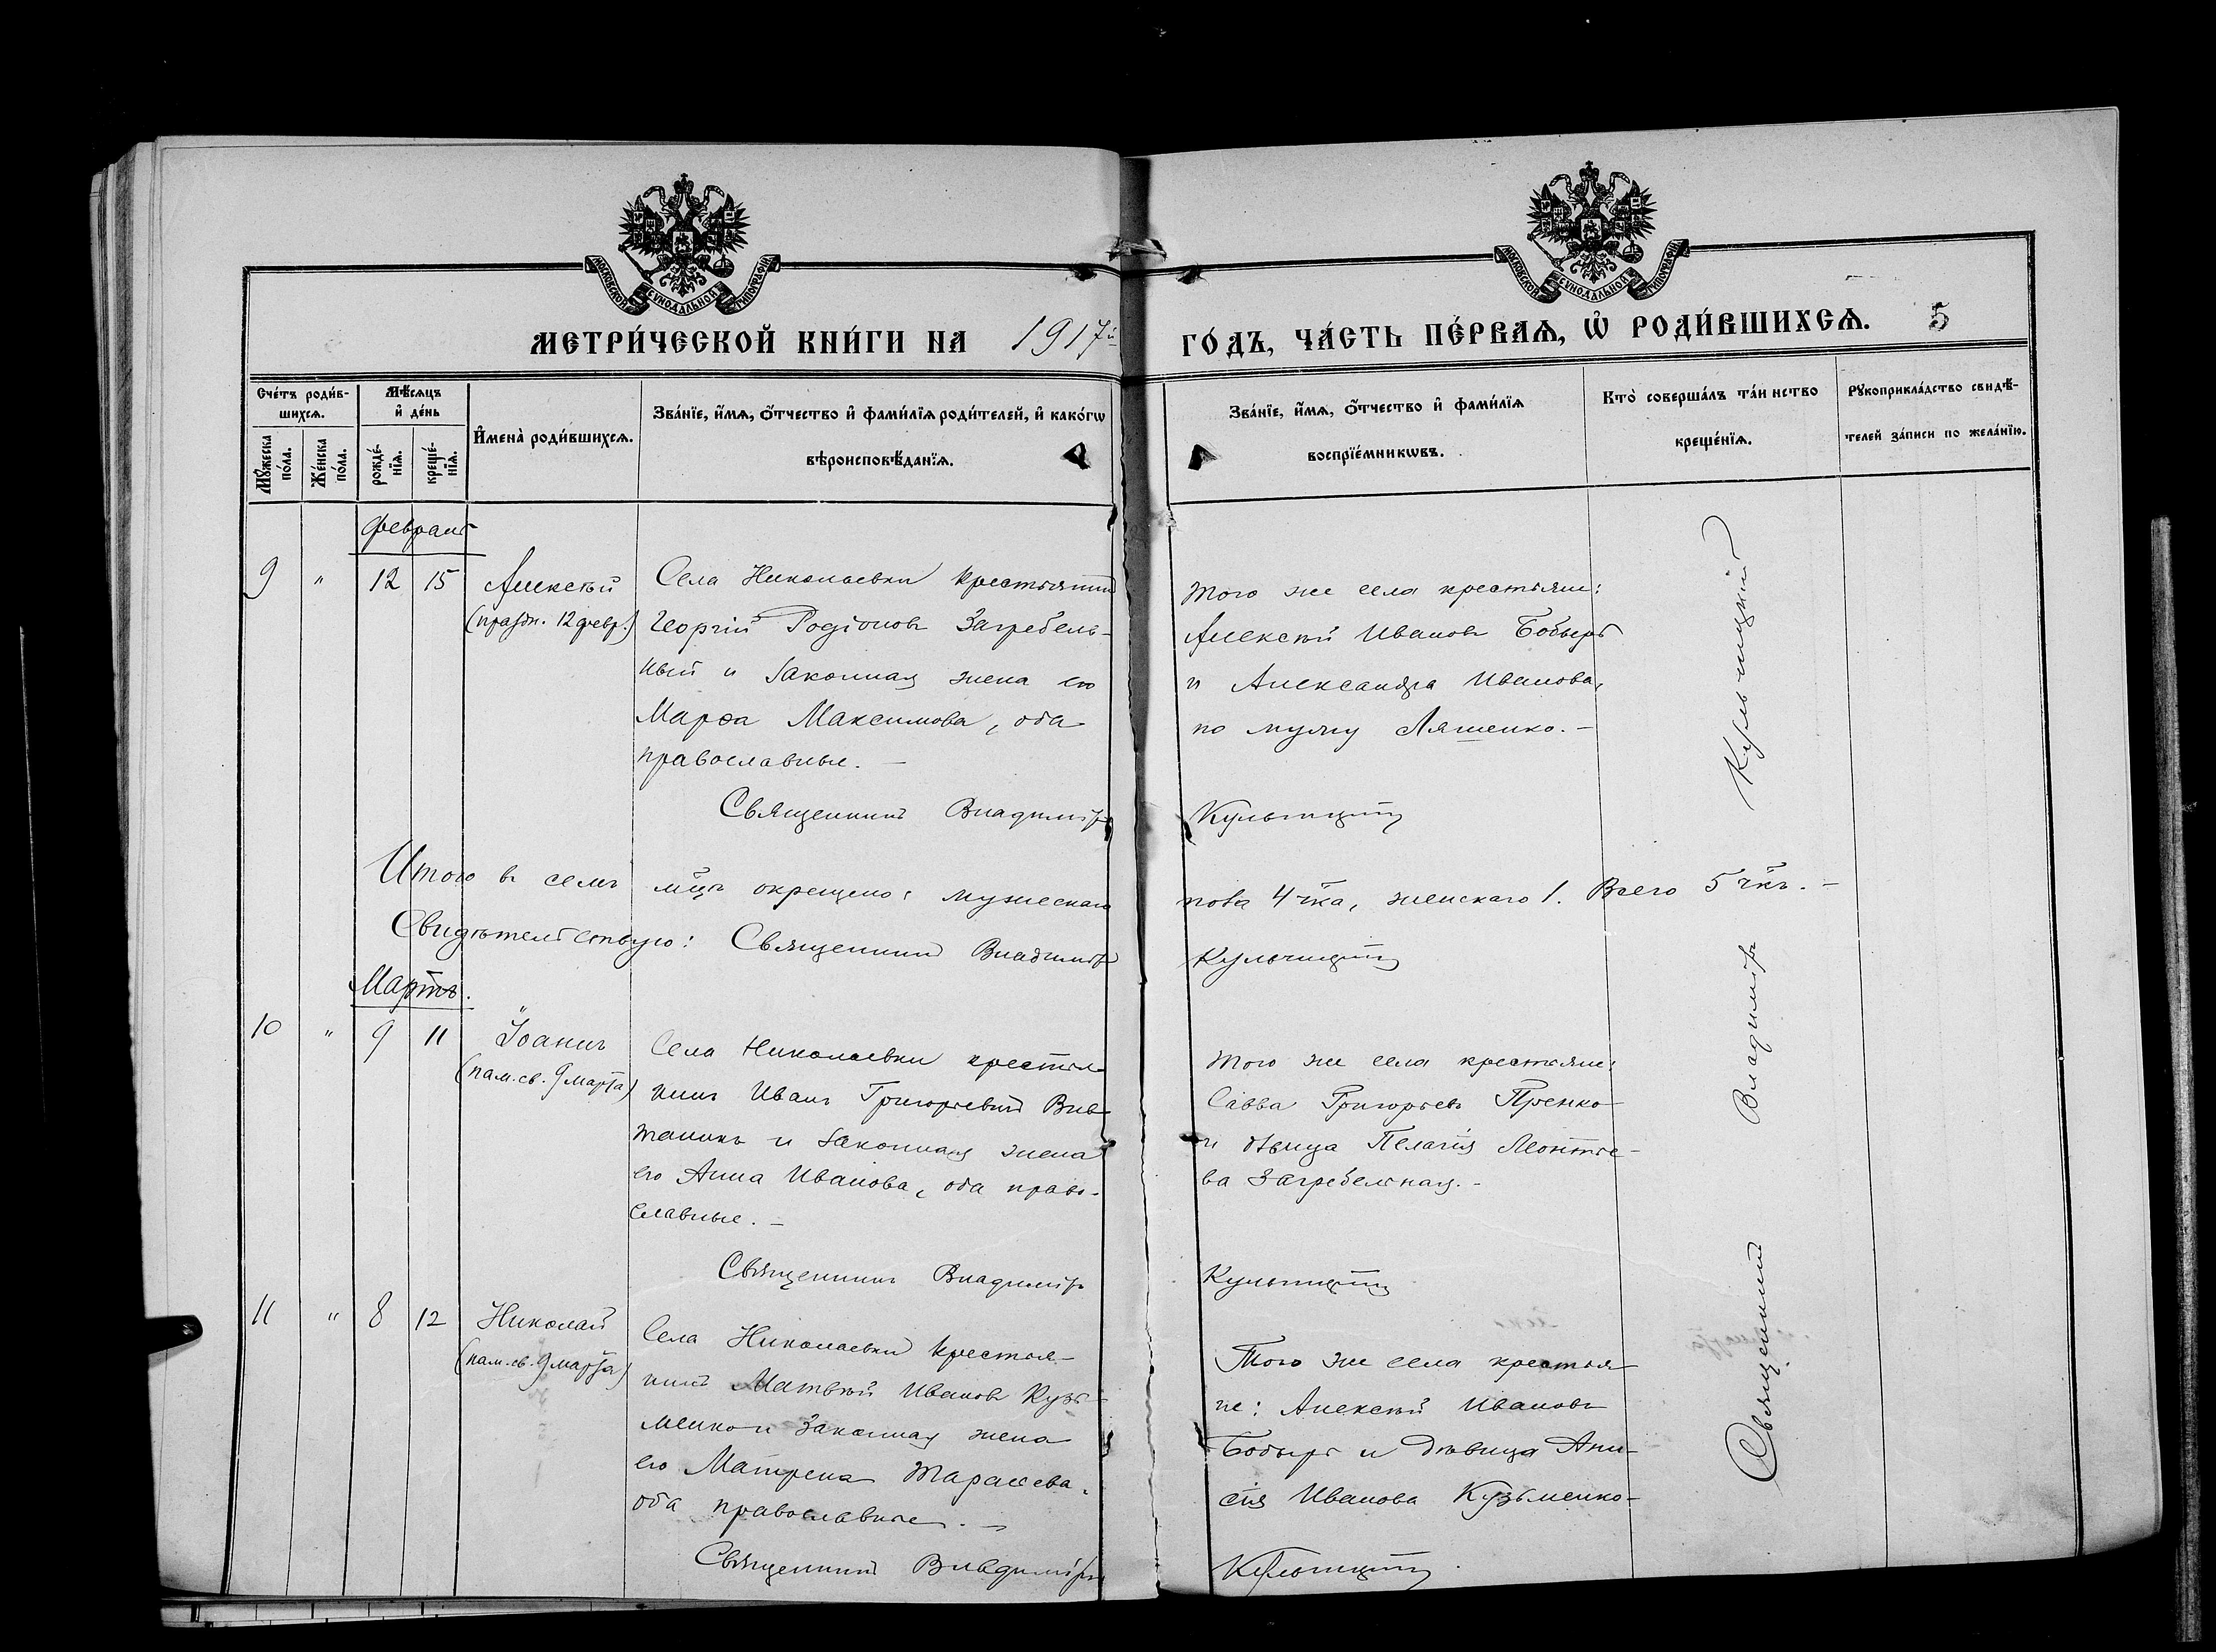 МОСКОВСКОЙ СѴНОДАЛЬНОЙ ТИПОГРАФІИ
МОСКОВСКОЙ СѴНОДАЛЬНОЙ ТИПОГРАФІИ
МЕТРИ́ЧЕСКОЙ КНИ́ГИ НА 1917й ГО́ДЪ, ЧА́СТЬ ПЕ́РВАѦ, Ѡ҆ РОДИ́ВШИХСѦ. 5
Сче́тъ роди́в-
шихсѧ.
Мꙋ́жеска по́ла.
Же́нска по́ла.
Мѣ́сѧцъ
и҆ де́нь
рожде́-
нїѧ.
креще́-
нїѧ.
И҆мена̀ роди́вшихсѧ.
Зва́нїе, и҆́мѧ, ѻ҆́тчество и҆ фами́лїѧ роди́телей, и҆ како́гѡ
вѣроисповѣ́данїѧ.
Зва́нїе, и҆́мѧ, ѻ҆́тчество и҆ фами́лїѧ
воспрїе́мникѡвъ.
Кто̀ соверша́лъ та́инство
креще́нїѧ.
Рꙋкоприкла́дство свидѣ́-
телей за́писи по жела́нїю.
Февраль
9 " 12 15 Алексѣй
(праздн. 12 февр.)
Села Николаевки крестьянинъ
Георгій Родіоновъ Загребель-
ный и законная жена его
Марѳа Максимова, оба
православные. —
Священникъ Владиміръ Кульчицкій
того же села крестьяне:
Алексѣй Ивановъ Бобырь
и Александра Иванова,
по мужу Ляшенко. —
Итого въ семъ мц҃ѣ окрещено: мужескаго пола 4 чка, женскаго 1. Всего 5 чкъ. —
Свидѣтельствую: Священникъ Владиміръ Кульчицкій
Мартъ.
10 " 9 11 Іоаннъ
(пам. св. 9 марта)
Села Николаевки крестья-
нинъ Иванъ Григорьевичъ
и законная жена
его Анна Иванова, оба право-
славные. —
Священникъ Владиміръ Кульчицкій
того же села крестьяне:
Савва Григорьевъ
и дѣвица Пелагія Леонтье-
ва Загребельная. —
11 " 8 12 Николай
(пам. св. 9 марта)
Села Николаевки крестья-
нинъ Матвѣй Ивановъ Кузь-
менко и законная жена
его Матрена Тарасьева,
оба православные. —
Священникъ Владиміръ Кульчицкій
Того же села крестья-
не: Алексѣй Ивановъ
Бобырь и дѣвица Ани-
сія Иванова Кузьменко —
Священникъ Владиміръ Кульчицкій